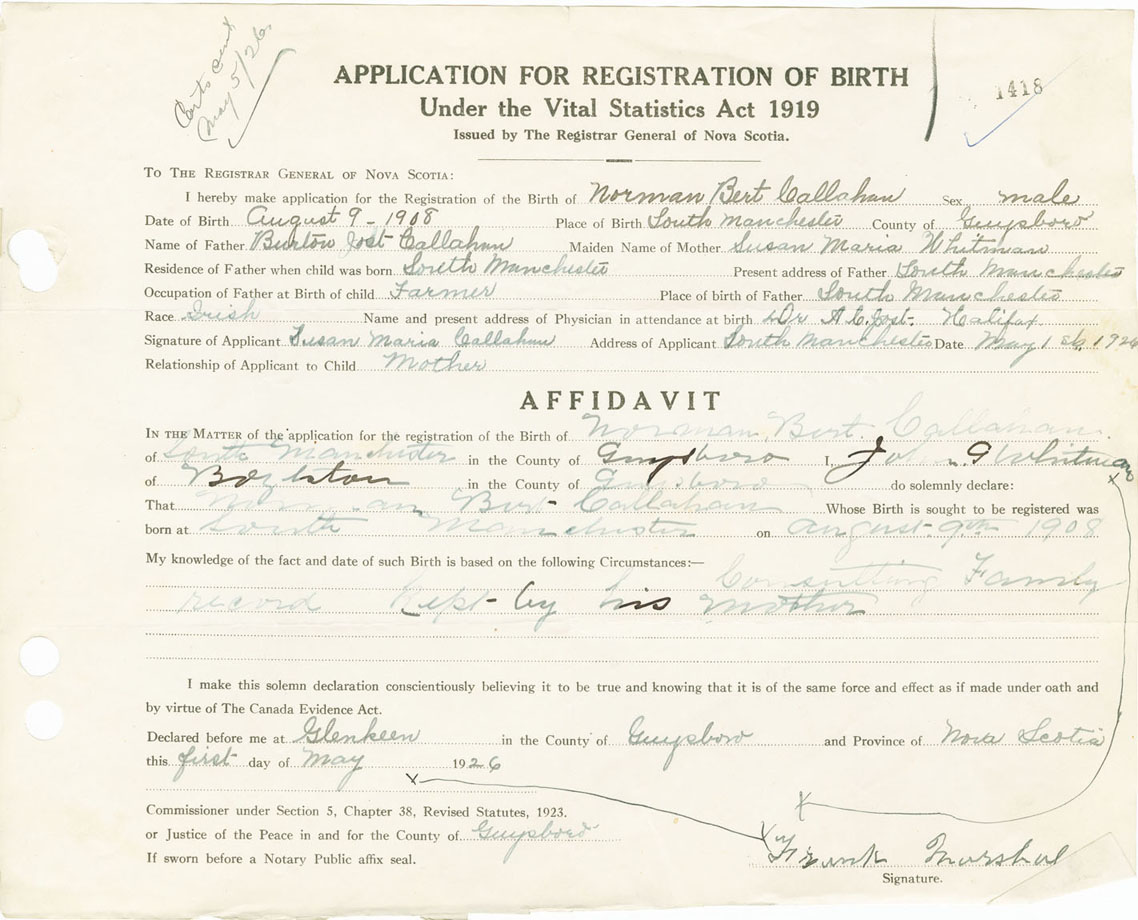 Certs sent
May 5/26
APPLICATION FOR REGISTRATION OF BIRTH
1418
Under the Vital Statistics Act 1919
Issued by The Registrar General of Nova Scotia.
To The Registrar General of Nova Scotia:
I hereby make application for the Registration of the Birth of Norman Bert Callahan Sex male
Date of Birth August 9 - 1908 Place of Birth South Manchester County of Guysboro
Name of Father Burton Jost Callahan Maiden Name of Mother Susan Maria Whitman
Residence of Father when child was born South Manchester Present address of Father South Manchester
Occupation of Father at Birth of child Farmer Place of birth of Father South Manchester
Race Irish Name and present address of Physician in attendance at birth Dr A.C. Jost. Halifax
Signature of Applicant Susan Maria Callahan Address of Applicant South Manchester Date May 1st 1926
Relationship of Applicant to Child Mother
AFFIDAVIT
In the Matter of the application for the registration of the Birth of Norman Bert Callahan.
of South Manchester in the County of Guysboro I, John G Whitman
of Boylston in the County of Guysboro do solemnly declare:
That Norman Bert Callahan Whose Birth is sought to be registered was
born at South Manchester on August 9th 1908
My knowledge of the fact and date of such Birth is based on the following Circumstances:—
Consulting Family
record Kept by his Mother
I make this solemn declaration conscientiously believing it to be true and knowing that it is of the same force and effect as if made under oath and
by virtue of The Canada Evidence Act.
Declared before me at Glenkeen in the County of Guysboro and Province of Nova Scotia
this first day of May 1926
Commissioner under Section 5, Chapter 38, Revised Statutes, 1923.
or Justice of the Peace in and for the County of Guysboro
If sworn before a Notary Public affix seal.
Frank Marshal
Signature.